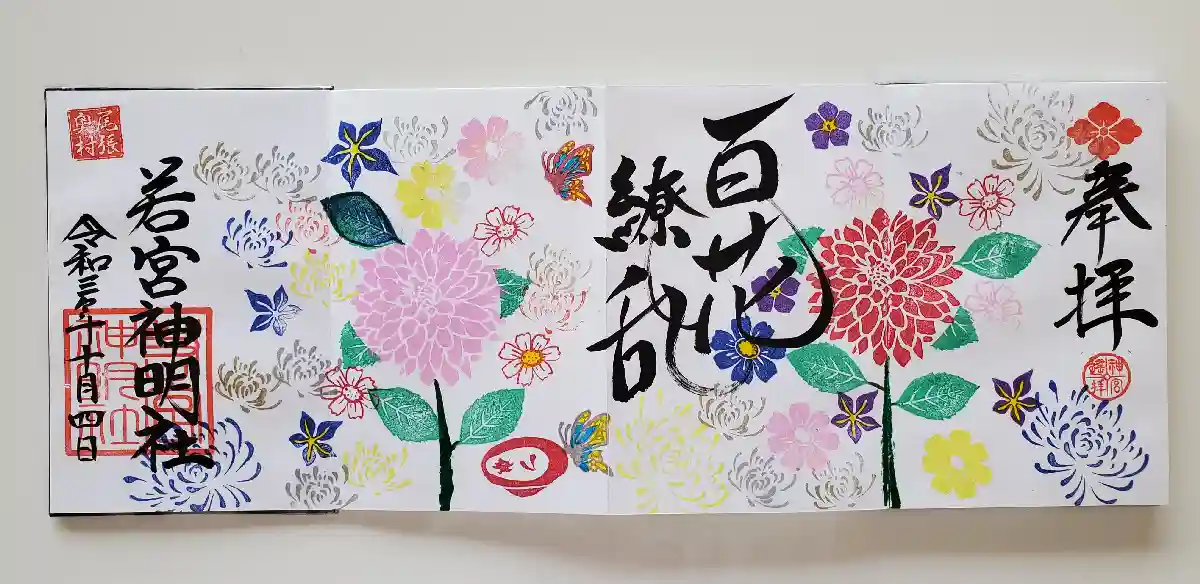 奉拝
神宮
遥拝
百花
繚乱
若宮神明社
令和三年十月四日
尾張
奥村